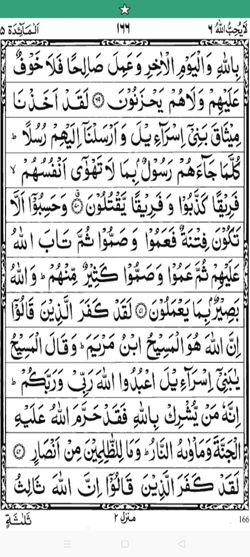 لَا يُحِبُّ اللهُ ٦ ١٢٦ اَلْمَآئِدَة ٥
بِاللهِ وَالْيَوْمِ الْاٰخِرِ وَعَمِلَ صَالِحًا فَلَا خَوْفٌ
عَلَيْهِمْ وَلَا هُمْ يَحْزَنُوْنَ ﴿٦٩﴾ لَقَدْ اَخَذْنَا
مِيْثَاقَ بَنِيْٓ اِسْرَآءِيْلَ وَاَرْسَلْنَآ اِلَيْهِمْ رُسُلًا ؕ
كُلَّمَا جَآءَهُمْ رَسُوْلٌۢ بِمَا لَا تَهْوٰٓى اَنْفُسُهُمْ ۙ
فَرِيْقًا كَذَّبُوْا وَفَرِيْقًا يَّقْتُلُوْنَ ﴿٧٠﴾ وَحَسِبُوْٓا اَلَّا
تَكُوْنَ فِتْنَةٌ فَعَمُوْا وَصَمُّوْا ثُمَّ تَابَ اللهُ
عَلَيْهِمْ ثُمَّ عَمُوْا وَصَمُّوْا كَثِيْرٌ مِّنْهُمْ ؕ وَاللهُ
بَصِيْرٌۢ بِمَا يَعْمَلُوْنَ ﴿٧١﴾ لَقَدْ كَفَرَ الَّذِيْنَ قَالُوْٓا
اِنَّ اللهَ هُوَ الْمَسِيْحُ ابْنُ مَرْيَمَ ؕ وَقَالَ الْمَسِيْحُ
يٰبَنِيْٓ اِسْرَآءِيْلَ اعْبُدُوا اللهَ رَبِّيْ وَرَبَّكُمْ ؕ
اِنَّهٗ مَنْ يُّشْرِكْ بِاللهِ فَقَدْ حَرَّمَ اللهُ عَلَيْهِ
الْجَنَّةَ وَمَاْوٰىهُ النَّارُ ؕ وَمَا لِلظّٰلِمِيْنَ مِنْ اَنْصَارٍ ﴿٧٢﴾
لَقَدْ كَفَرَ الَّذِيْنَ قَالُوْٓا اِنَّ اللهَ ثَالِثُ
ثَلٰثَةٍ منزل ٢ 166